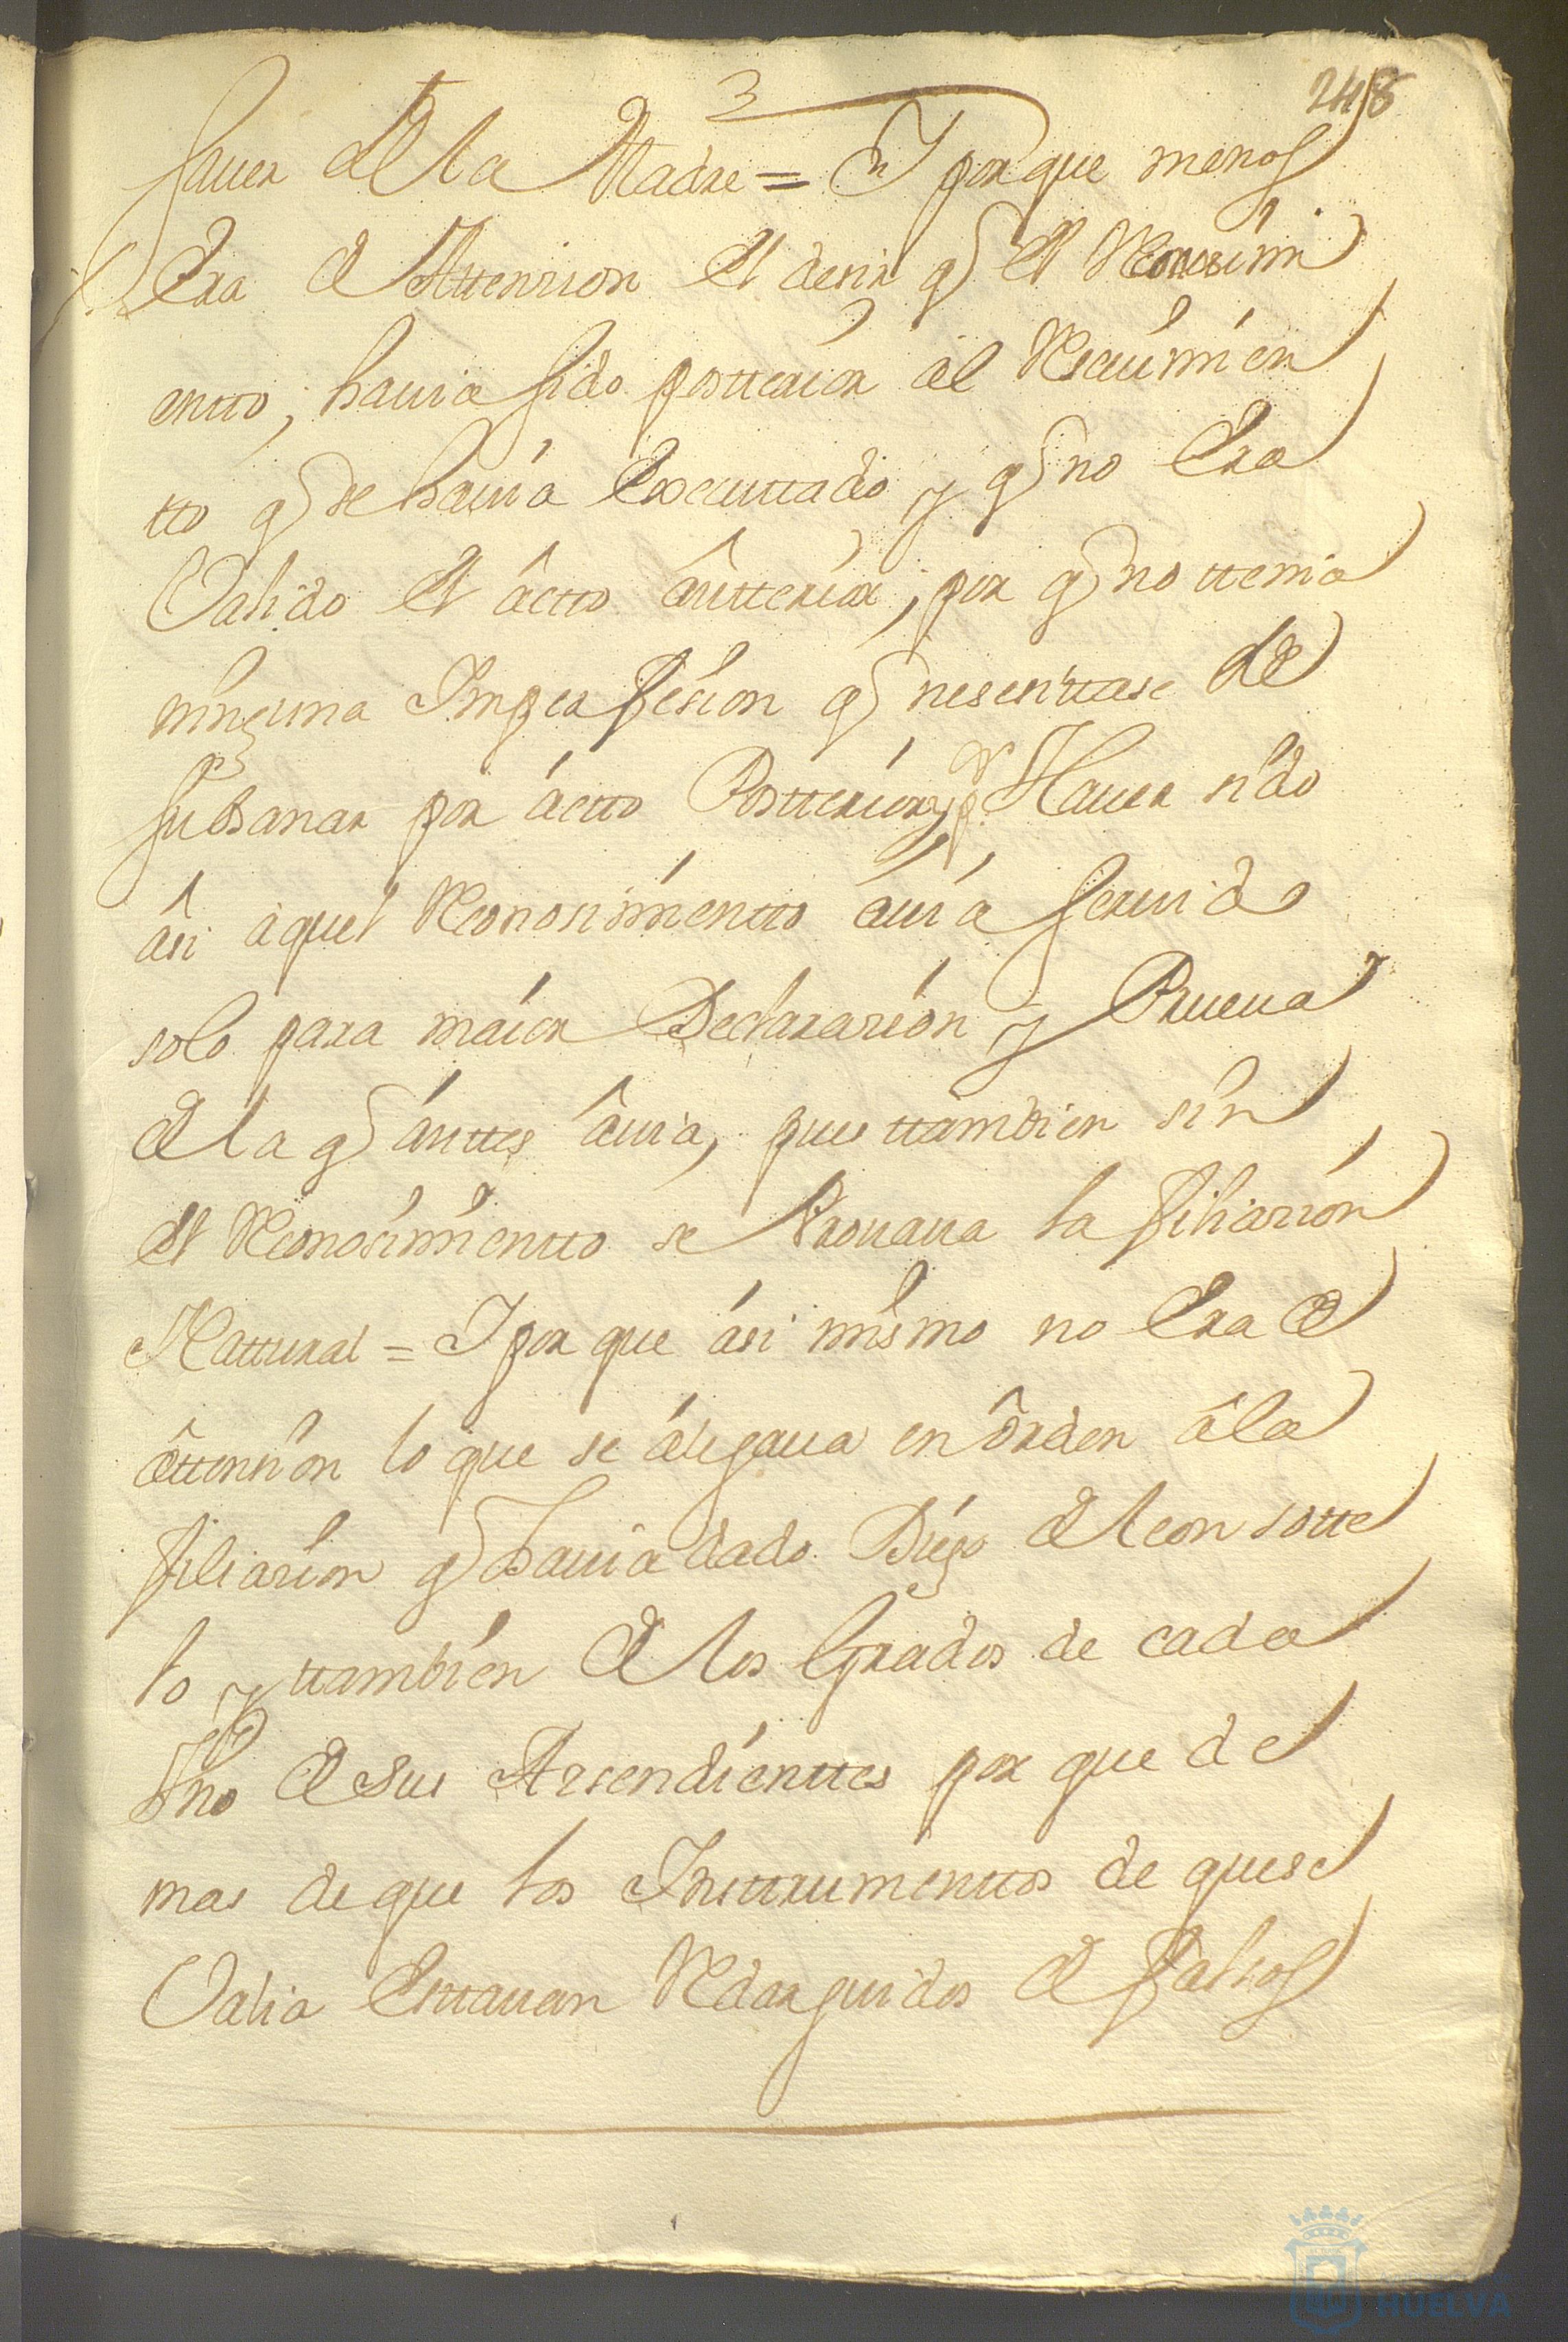 3
248
favor de la Madre = Y porque menos
Era de Attension el desir q el Reconosimi
entto, havia sido postterior al Resivimien
tto q se havia Executtado y q no Era
Valido el actto antterior, por q no ttenia
ninguna Imperfesion q nesesittase de
subsanar por actto Postterior, y Haver sido
asi aquel Reconosimientto avia servido
solo para maior Declarasion y Prueva
de la q anttes avia, pues ttambien sin
el Reconosimientto se Provava la filiasion
Nattural = Y por que asi mismo no Era de
attension lo que se alegava en orden a la
filiasion q havia dado Diego de leon sotte
lo y ttambien de los Grados de cada
Vno de sus Assendienttes por que de
mas de que los Insttrumenttos de que se
Valia Esttavan Redarguidos de falsos
HUELVA